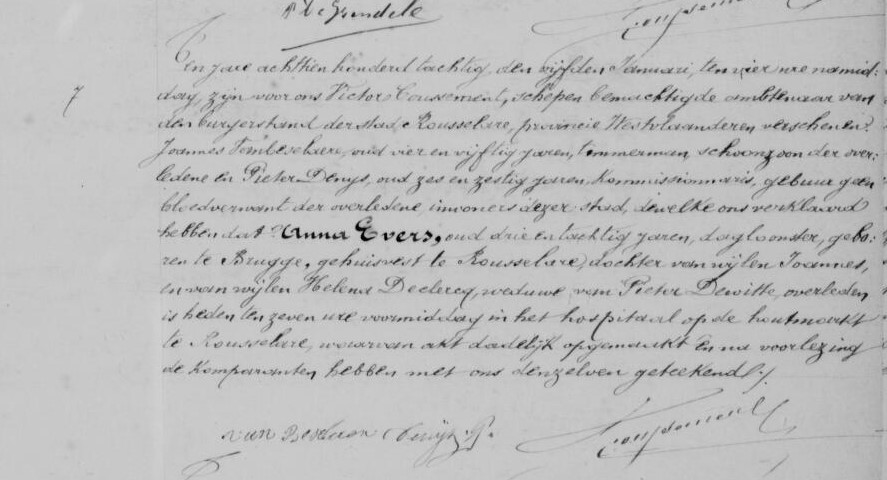 De Grendele
Coussement
7
Ten jare achttien honderd tachtig, den vijfden Januari, ten vier ure namid:
dag, zijn voor ons Victor Coussement, schepen bemachtigde ambtenaar van
den burgerstand der stad Rousselare, provincie Westvlaanderen verschenen:
Joannes oud vier en vijftig jaren, timmerman schoonzoon der over:
ledene en Pieter Denys, oud zes en zestig jaren, Kommissionnaris, gebuur geen
bloedverwant der overledene, inwoners dezer stad, dewelke ons verklaard
hebben dat Anna Evers, oud drie en tachtig jaren, dagloonster, gebo:
ren te Brugge, gehuisvest te Rousselare, dochter van wijlen Joannes,
en van wijlen Helena Declercq, weduwe van Pieter Dewitte, overleden
is heden ten zeven ure voormiddag in het hospitaal op de houtmarkt
te Rousselare, waarvan akt dadelijk opgemaakt En na voorlezing
de Komparanten hebben met ons denzelven geteekend ./.
van Denijs P. Coussement